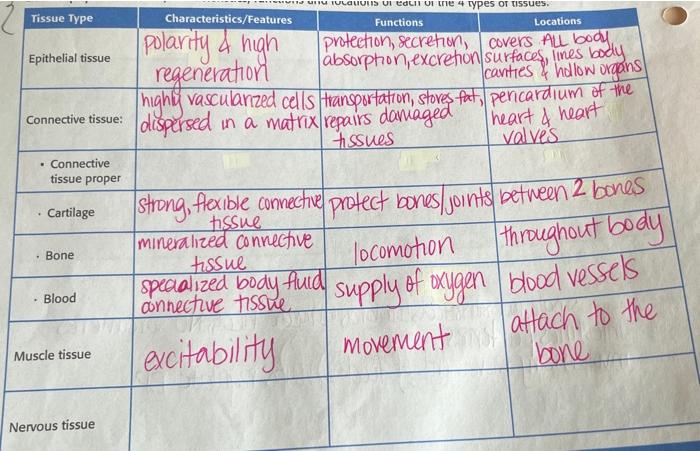 2
functions and locations of each of the 4 types of tissues.
Tissue Type
Characteristics/Features
Functions
Locations
Epithelial tissue
polarity & high
regeneration
protection, secretion,
absorption, excretion
covers ALL body
surfaces, lines body
cavities & hollow organs
Connective tissue:
highly vascularized cells
dispersed in a matrix
transportation, stores fat,
repairs damaged
tissues
pericardium of the
heart & heart
valves
• Connective
tissue proper
· Cartilage
strong, flexible connective
tissue
protect bones/joints
between 2 bones
· Bone
mineralized connective
tissue
locomotion
throughout body
· Blood
specialized body fluid
connective tissue
supply of oxygen
blood vessels
Muscle tissue
excitability
movement
attach to the
bone
Nervous tissue